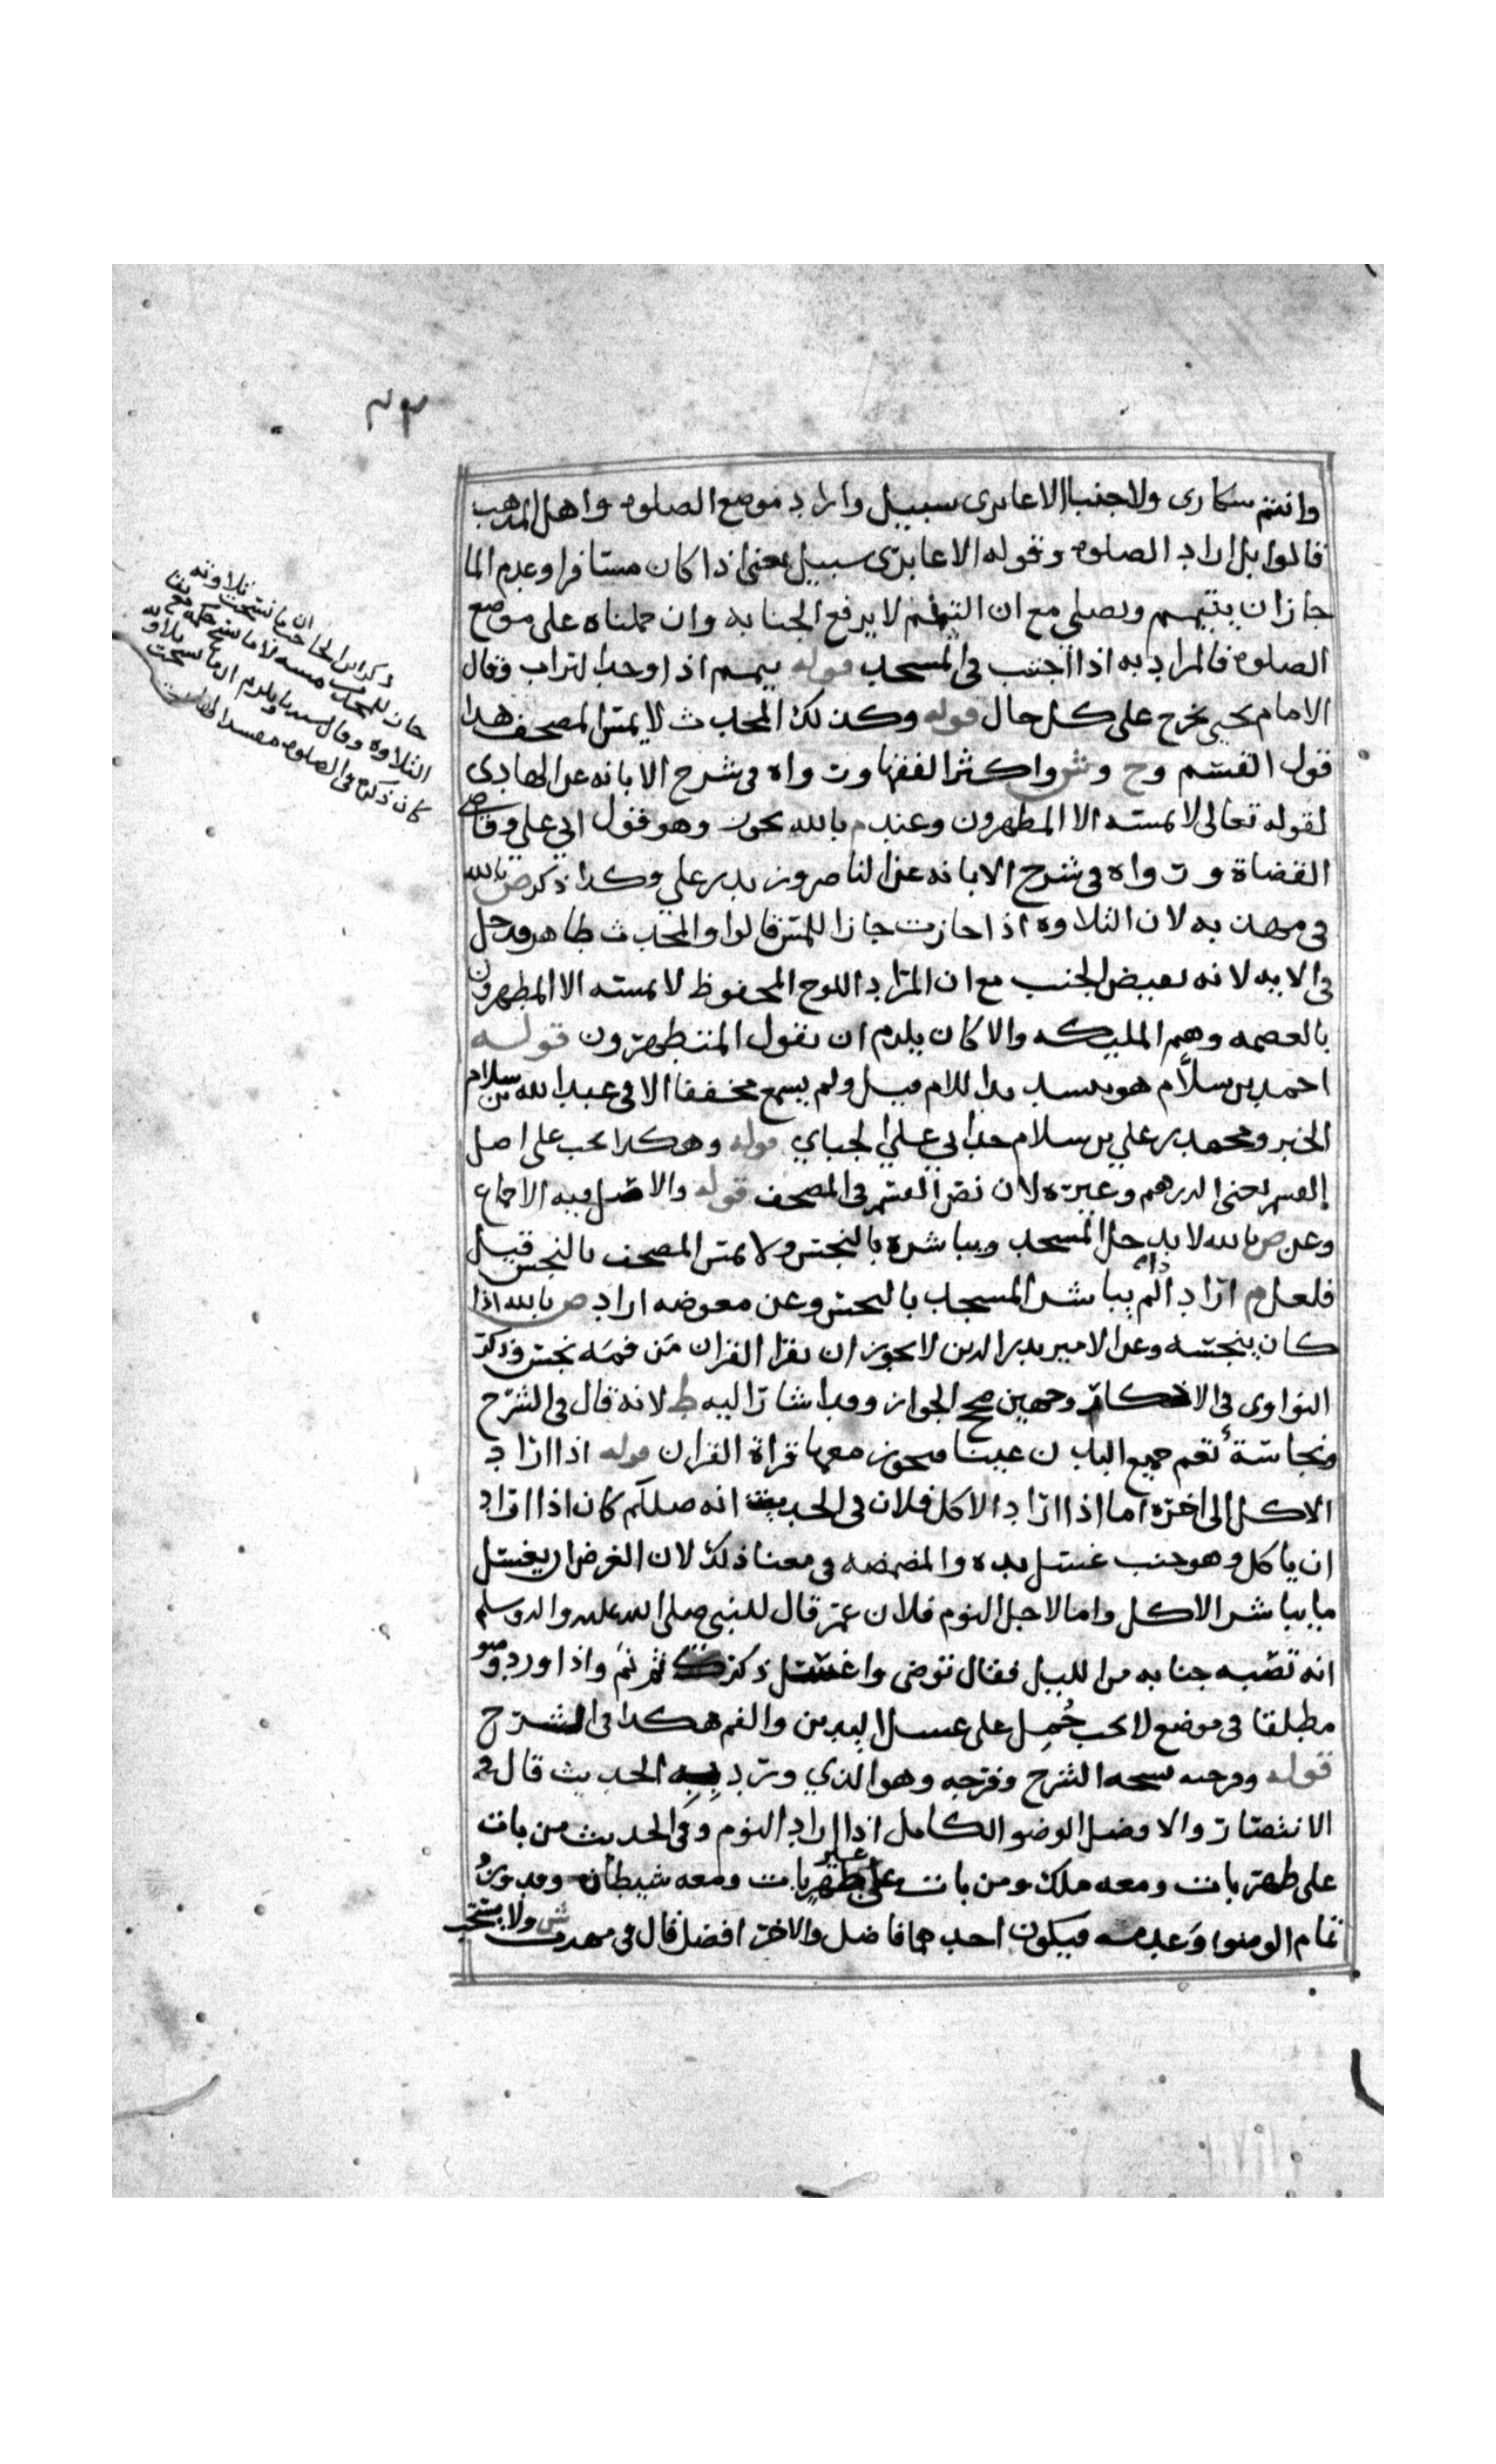 وانتم سكارى ولا جنبا الا عابرى سبيل واراد موضع الصلوه واهل المذهب
قالوا بل اراد الصلوه وقوله الا عابرى سبيل يعنى اذا كان مسافرا وعدم الما
جاز ان يتيمم ويصلي مع ان التيمم لا يرفع الجنابه وان حملناه على موضع
الصلوه فالمراد به اذا اجنب في المسجد قوله يمم اذا وجد التراب وقال
الامام يحيى يخرج على كل حال قوله وكذلك المحدث لا يمس المصحف هذا
قول القسم وح وش واكثر الفقها ورواه في شرح الابانه عن الهادى
لقوله تعالى لا يمسه الا المطهرون وعند م بالله يجوز وهو قول ابي علي وقاضي
القضاة ورواه في شرح الابانه عن الناصر وزيد بن علي وكذا ذكر ص بالله
في مهذبه لان التلاوه اذا جازت جاز اللمس قالوا والمحدث طاهر ودخل
في الايه لانه نقيض الجنب مع ان المراد اللوح المحفوظ لا يمسه الا المطهرون
بالعصمه وهم المليكه والا كان يلزم ان يقول المتطهرون قوله
احمد بن سلام هو بتشديد اللام قيل ولم يسمع مخففا الا في عبدالله بن سلام
الخبر ومحمد بن علي بن سلام جد ابي علي الجباي قوله وهكذا يجب على اصل
القسم يعنى الدرهم وغيره لان نص القسم في المصحف قوله والاصل فيه الاجماع
وعن ص بالله لا يدخل المسجد ويباشره بالنجس ولا يمس المصحف بالنجس قيل
فلعل م اراد الم يباشر المسجد بالنجس وعن معوضه اراد ص بالله اذا
كان ينجسه وعن الامير بدر الدين لا يجوز ان يقرا القران من فمه نجس وذكر
النواوى في الاذكار وجهين صحح الجواز وقد اشار اليه ط لانه قال في الشرح
ونجاسة الفم جميع البدن عينا فيجوز معها قراة القران قوله اذا اراد
الاكل الى اخره اما اذا اراد الاكل فلان في الحديث انه صللم كان اذا اراد
ان ياكل وهو جنب غسل يده والمضمضه في معنا ذلك لان الغرض ان يغسل
ما يباشر الاكل واما لاجل النوم فلان عمر قال للنبي صلى الله عليه واله وسلم
انه تصيبه جنابه من الليل فقال توضى واغسل ذكرك ثم نم واذا ورد وضو
مطلقا في موضع لا يجب حُمل على غسل اليدين والفم هكذا في الشرح
قوله وفرجه نسخه الشرح وفرجه وهو الذي ورد به الحديث قال في
الانتصار والافضل الوضو الكامل اذا اراد النوم وفي الحديث من بات
على طهر بات ومعه ملك ومن بات على غير طهر بات ومعه شيطان وقد ورد
تمام الوضوء وعدمه فيكون احدهما فاضل والاخر افضل قال في مهذب ش ولا يستحب
ذكر ابن الحاجب ان ما نسخت تلاوته
جاز للجنب مسه لا ما نسخ حكمه مع بقا
التلاوه
كان ذكره في الصلوه مفسدا لها